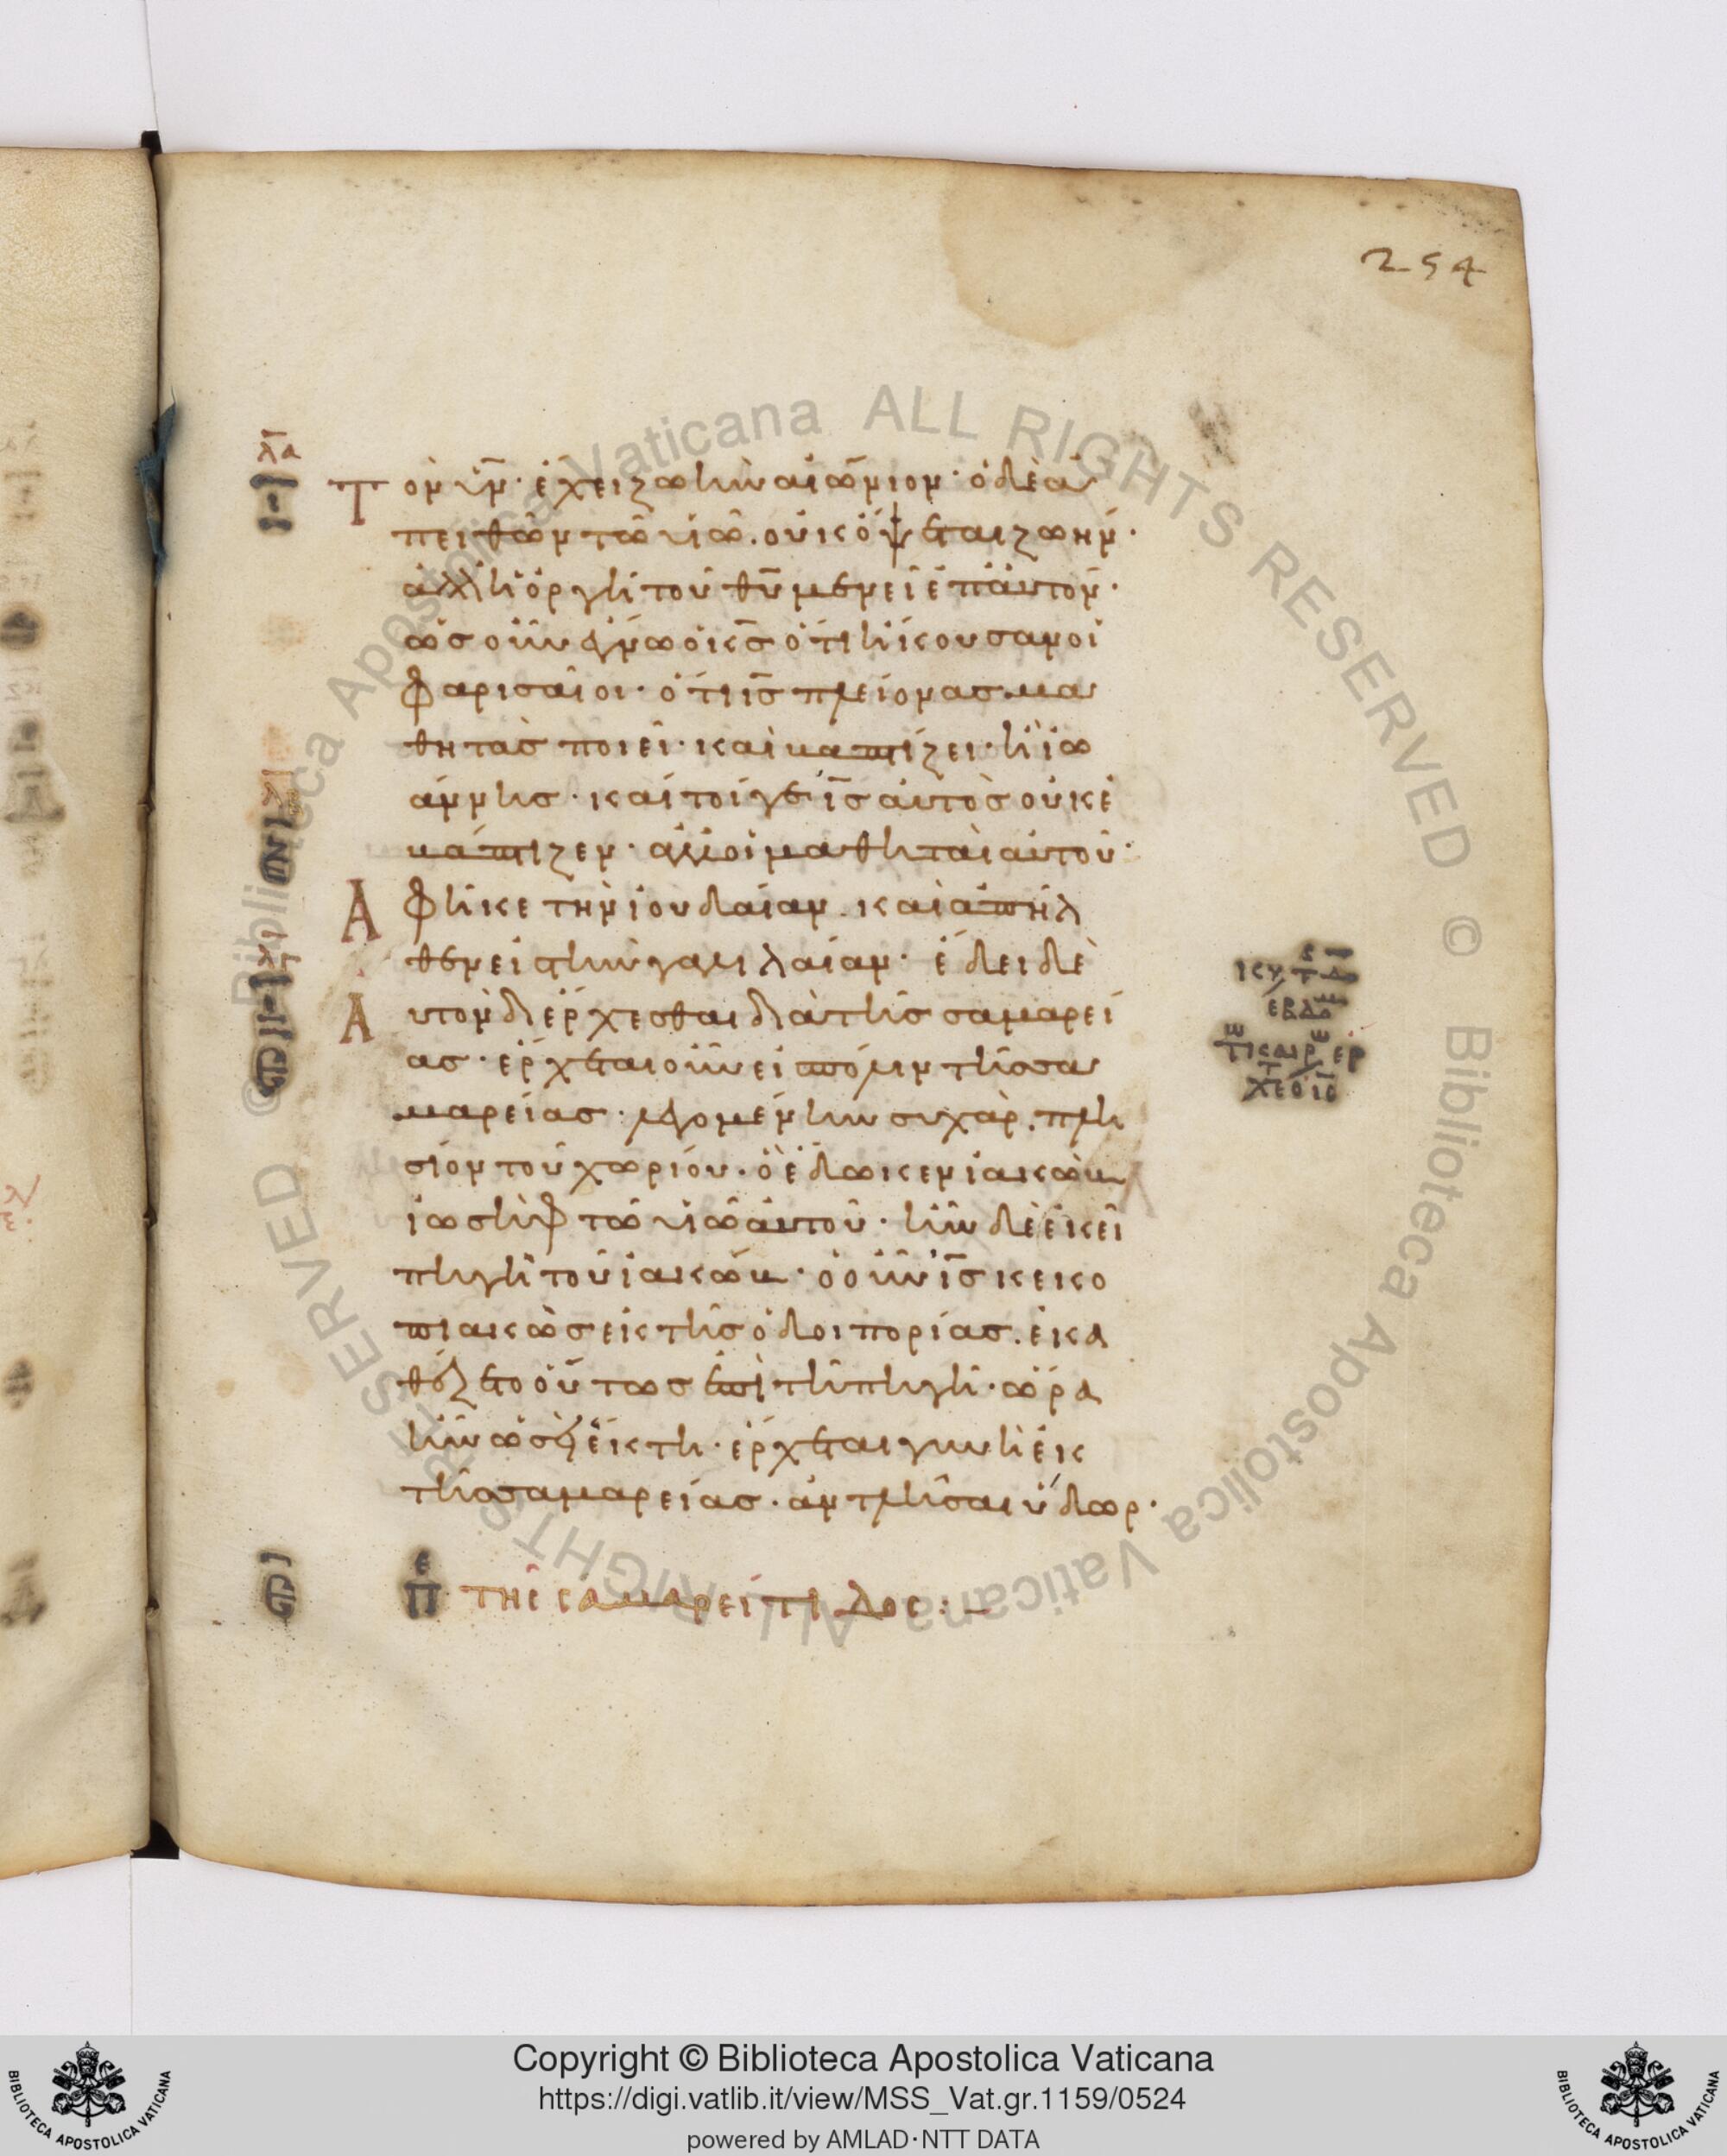 254
λα
Τὸν υ̅ν̅· ἔχει ζωὴν αἰώνιον· ὁ δὲ ἀ
πειθῶν τῶ υἱῶ. οὐκ ὄψεται ζωήν·
ἀλλ' ἡ ὀργὴ τοῦ θ̅υ̅ μένει ἐπ' αὐτόν·
ὡς οὖν ἔγνω ὁ κ̅ς̅ ὅτι ἤκουσαν οἱ
φαρισαῖοι· ὅτι ι̅ς̅ πλείονας μα
θητὰς ποιεῖ· καὶ βαπτίζει· ἢ ἰω
άννης· καί τοί γε ι̅ς̅ αὐτὸς οὐκ ἐ
βάπτιζεν· ἀλλ' οἱ μαθηταὶ αὐτοῦ·
Ἀφῆκε τὴν ἰουδαίαν. καὶ ἀπῆλ
θεν εἰς τὴν γαλιλαίαν· ἔδει δὲ
Αὐτὸν διέρχεσθαι διὰ τῆς σαμαρεί
ας· ἔρχεται οὖν εἰς πόλιν τῆς σα
μαρείας· λεγομένην συχὰρ. πλη
σίον τοῦ χωρίου· ὃ ἔδωκεν ἰακὼβ
ἰωσὴφ τῶ υἱῶ αὐτοῦ· ἦν δὲ ἐκεῖ
πηγὴ τοῦ ἰακώβ· ὁ οὖν ι̅ς̅ κεκο
πιακὼς ἐκ τῆς ὁδοιπορίας. ἐκα
θέζετο οὕτως ἐπὶ τῆ πηγῆ· ὥρα
ἦν ὡσεὶ ἕκτη· ἔρχεται γυνὴ ἐκ
τῆς σαμαρείας· ἀντλῆσαι ὕδωρ·
Ε
Π· τῆς σαμαρείτιδος:–
Copyright © Biblioteca Apostolica Vaticana
https://digi.vatlib.it/view/MSS_Vat.gr.1159/0524
powered by AMLAD·NTT DATA
BIBLIOTECA APOSTOLICA VATICANA
BIBLIOTECA APOSTOLICA VATICANA
Biblioteca Apostolica Vaticana ALL RIGHTS RESERVED ©
Biblioteca Apostolica Vaticana ALL RIGHTS RESERVED ©